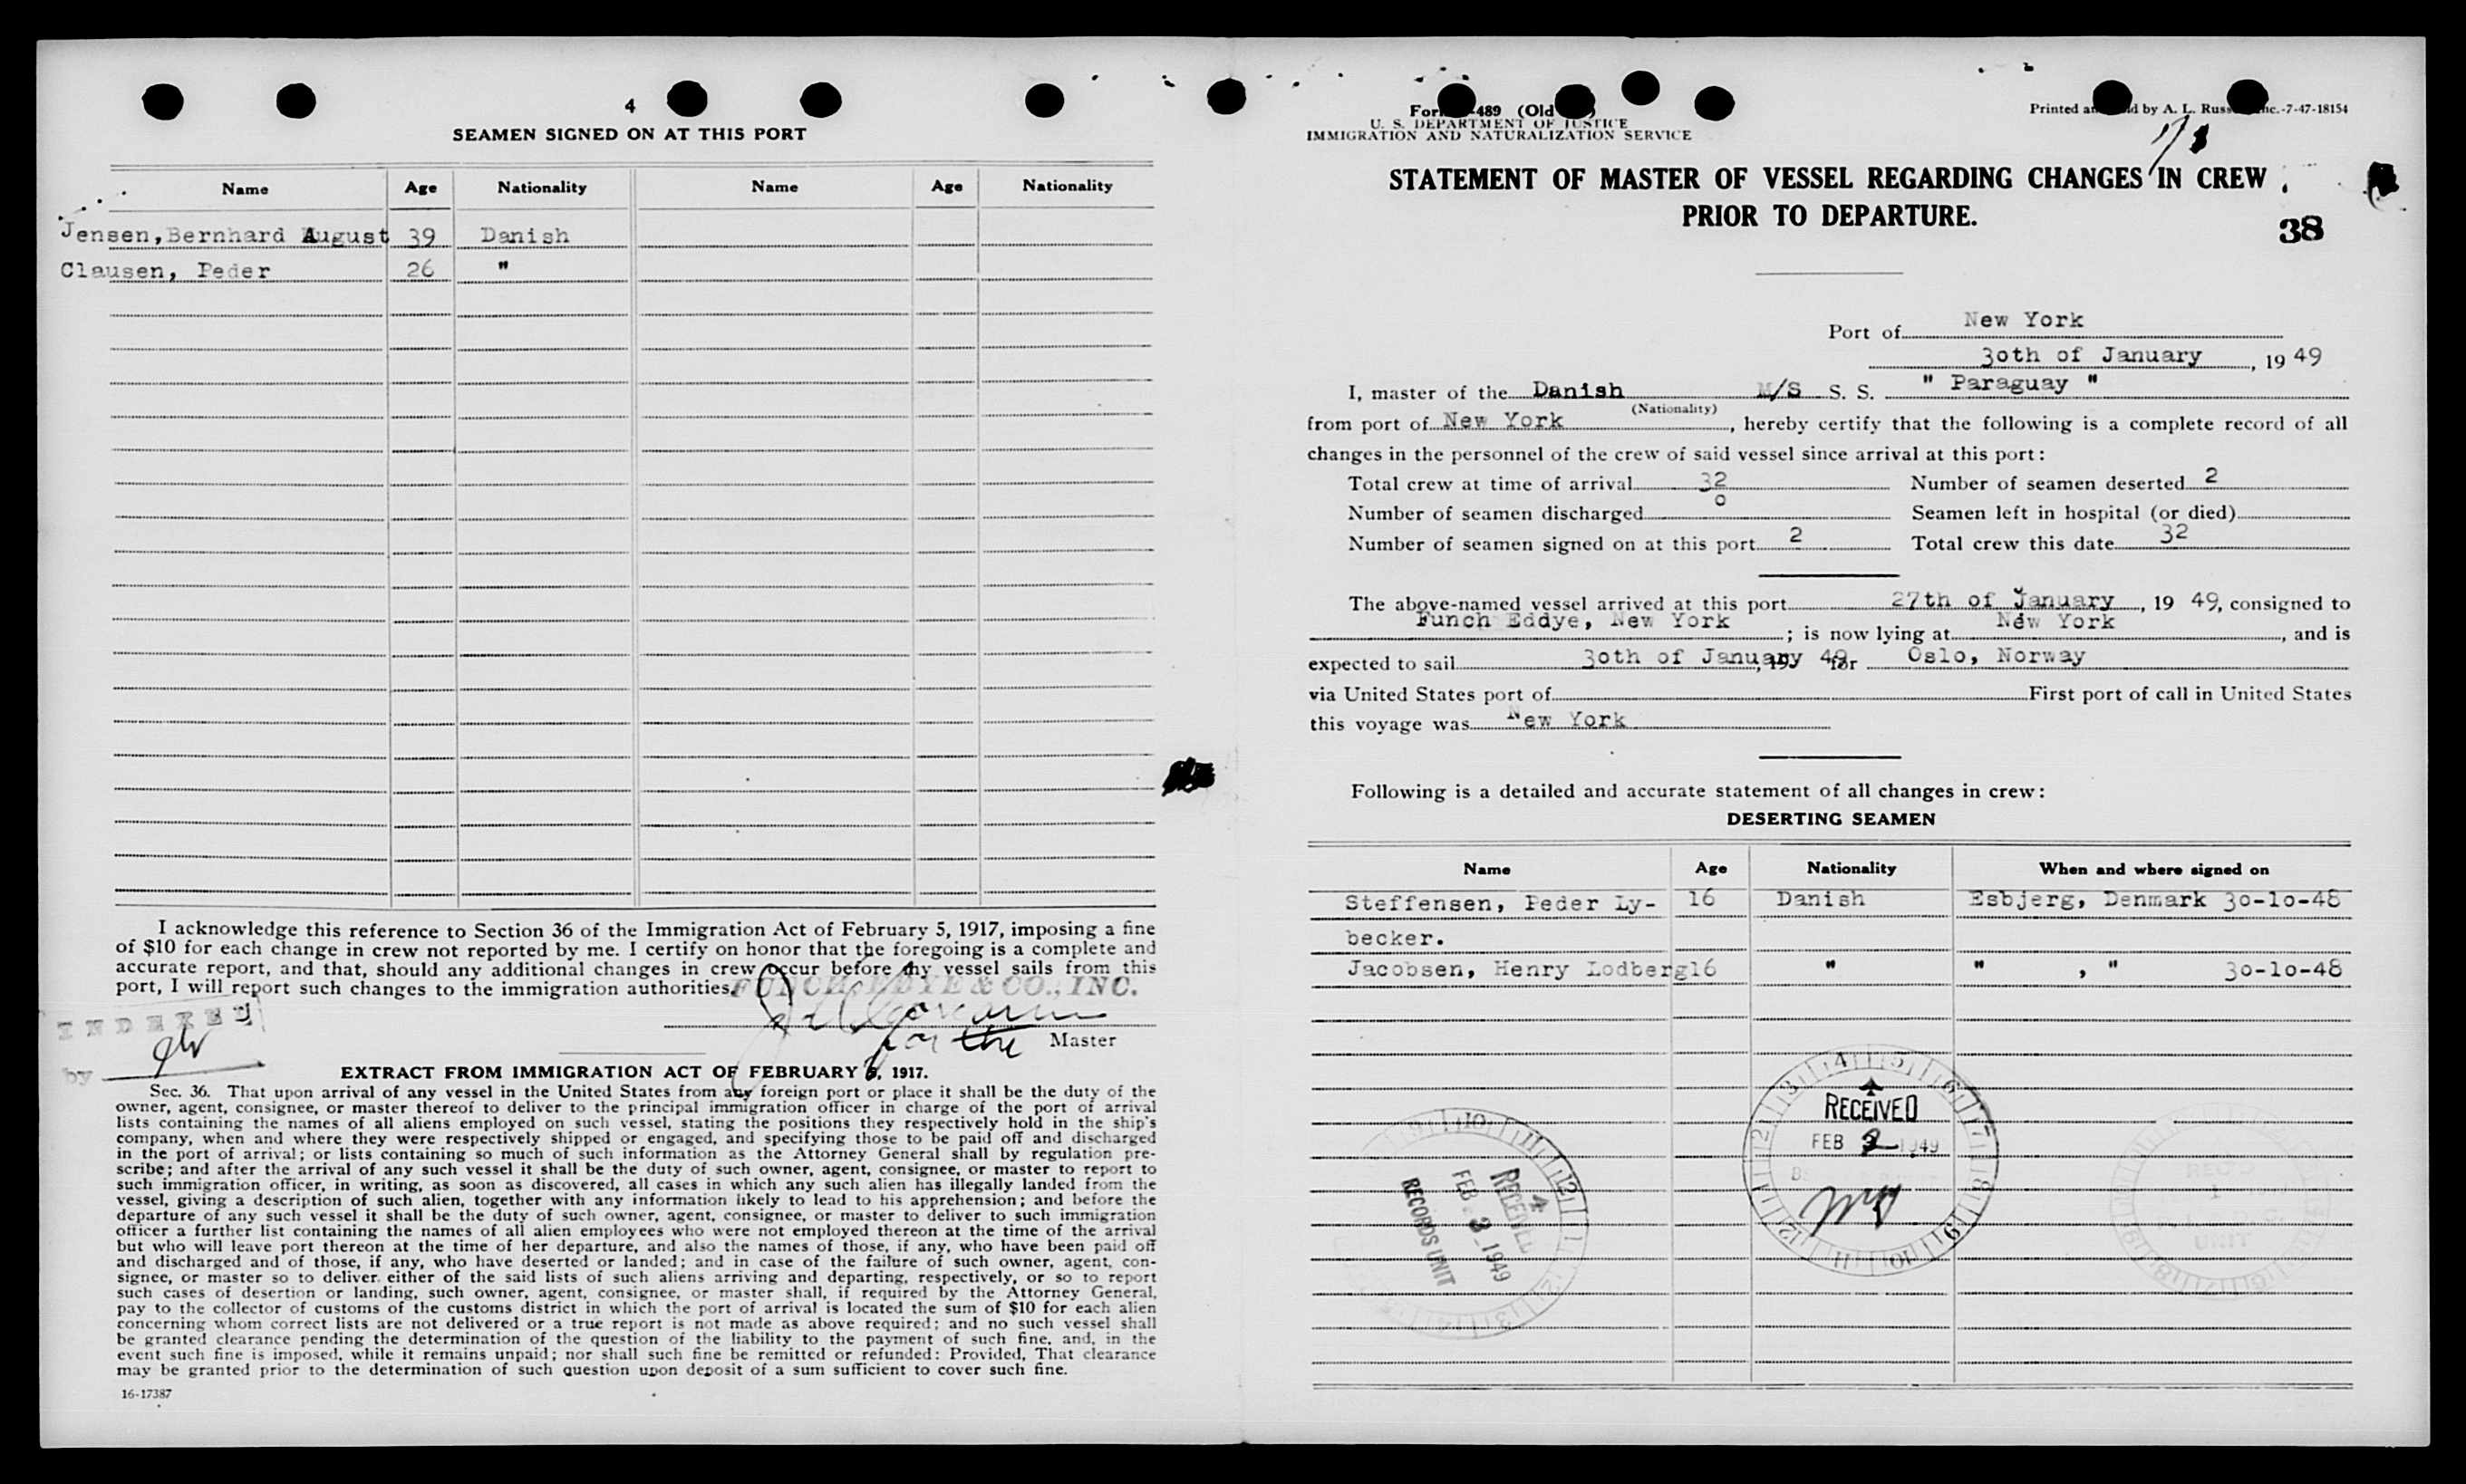 4
SEAMEN SIGNED ON AT THIS PORT
Name Age Nationality Name Age Nationality
Jensen, Bernhard August 39 Danish
Clausen, Peder 26 "
I acknowledge this reference to Section 36 of the Immigration Act of February 5, 1917, imposing a fine
of $10 for each change in crew not reported by me. I certify on honor that the foregoing is a complete and
accurate report, and that, should any additional changes in crew occur before my vessel sails from this
port, I will report such changes to the immigration authorities.
FUNCH, EDYE & CO., INC.
INDEXED
for the Master
by
EXTRACT FROM IMMIGRATION ACT OF FEBRUARY 5, 1917.
Sec. 36. That upon arrival of any vessel in the United States from any foreign port or place it shall be the duty of the
owner, agent, consignee, or master thereof to deliver to the principal immigration officer in charge of the port of arrival
lists containing the names of all aliens employed on such vessel, stating the positions they respectively hold in the ship's
company, when and where they were respectively shipped or engaged, and specifying those to be paid off and discharged
in the port of arrival; or lists containing so much of such information as the Attorney General shall by regulation pre-
scribe; and after the arrival of any such vessel it shall be the duty of such owner, agent, consignee, or master to report to
such immigration officer, in writing, as soon as discovered, all cases in which any such alien has illegally landed from the
vessel, giving a description of such alien, together with any information likely to lead to his apprehension; and before the
departure of any such vessel it shall be the duty of such owner, agent, consignee, or master to deliver to such immigration
officer a further list containing the names of all alien employees who were not employed thereon at the time of the arrival
but who will leave port thereon at the time of her departure, and also the names of those, if any, who have been paid off
and discharged and of those, if any, who have deserted or landed; and in case of the failure of such owner, agent, con-
signee, or master so to deliver either of the said lists of such aliens arriving and departing, respectively, or so to report
such cases of desertion or landing, such owner, agent, consignee, or master shall, if required by the Attorney General,
pay to the collector of customs of the customs district in which the port of arrival is located the sum of $10 for each alien
concerning whom correct lists are not delivered or a true report is not made as above required; and no such vessel shall
be granted clearance pending the determination of the question of the liability to the payment of such fine, and, in the
event such fine is imposed, while it remains unpaid; nor shall such fine be remitted or refunded: Provided, That clearance
may be granted prior to the determination of such question upon deposit of a sum sufficient to cover such fine.
16-17387
489 (Old
Printed by A. L. -7-47-18154
U. S. DEPARTMENT OF JUSTICE
IMMIGRATION AND NATURALIZATION SERVICE
STATEMENT OF MASTER OF VESSEL REGARDING CHANGES IN CREW
PRIOR TO DEPARTURE.
38
Port of New York
30th of January, 19 49
I, master of the Danish M/S S. S. " Paraguay "
(Nationality)
from port of New York, hereby certify that the following is a complete record of all
changes in the personnel of the crew of said vessel since arrival at this port:
Total crew at time of arrival 32 Number of seamen deserted 2
Number of seamen discharged 0 Seamen left in hospital (or died)
Number of seamen signed on at this port 2 Total crew this date 32
The above-named vessel arrived at this port 27th of January, 19 49, consigned to
Funch Eddye, New York; is now lying at New York, and is
expected to sail 30th of January, 19 49 for Oslo, Norway
via United States port of First port of call in United States
this voyage was New York
Following is a detailed and accurate statement of all changes in crew:
DESERTING SEAMEN
Name Age Nationality When and where signed on
Steffensen, Peder Ly- 16 Danish Esbjerg, Denmark 30-10-48
becker.
Jacobsen, Henry Lodberg 16 " " , " 30-10-48
RECEIVED
FEB 2 1949
RECEIVED
FEB 3 1949
RECORDS UNIT
REC'D
UNIT